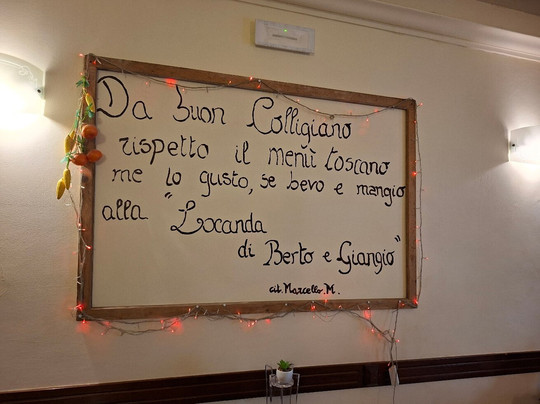 Da buon Colligiano
rispetto il menù toscano
me lo gusto, se bevo e mangio
alla "Locanda
di Berto e Giangio"
cit. Marcello. M.